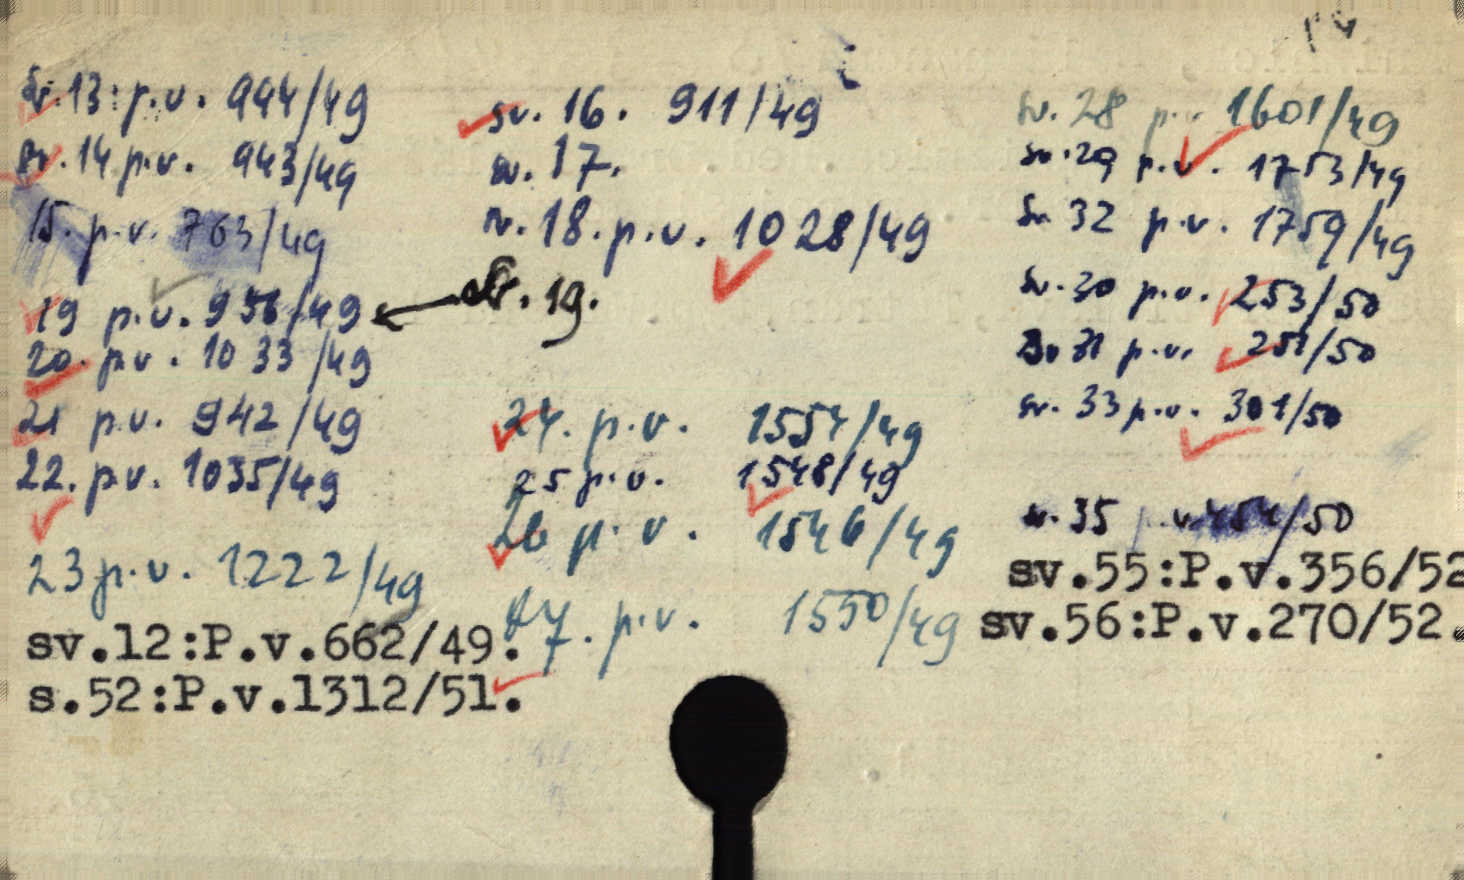 sv.13: p.v. 944/49
sv.14 p.v. 943/49
15. p.v. 763/49
19 p.v. 936/49
20. p.v. 1033/49
21 p.v. 942/49
22. p.v. 1035/49
23 p.v. 1222/49
sv.12:P.v.662/49.
s.52:P.v.1312/51.
sv. 16. 911/49
sv. 17.
sv. 18. p.v. 1028/49
sv. 19.
24. p.v. 1554/49
25 p.v. 1548/49
26 p.v. 1546/49
27. p.v. 1550/49
sv. 28 p.v. 1601/49
sv. 29 p.v. 1753/49
sv. 32 p.v. 1759/49
sv. 30 p.v. 253/50
sv 31 p.v. 251/50
sv. 33 p.v. 301/50
sv. 35 p.v. 454/50
sv.55:P.v.356/52
sv.56:P.v.270/52.